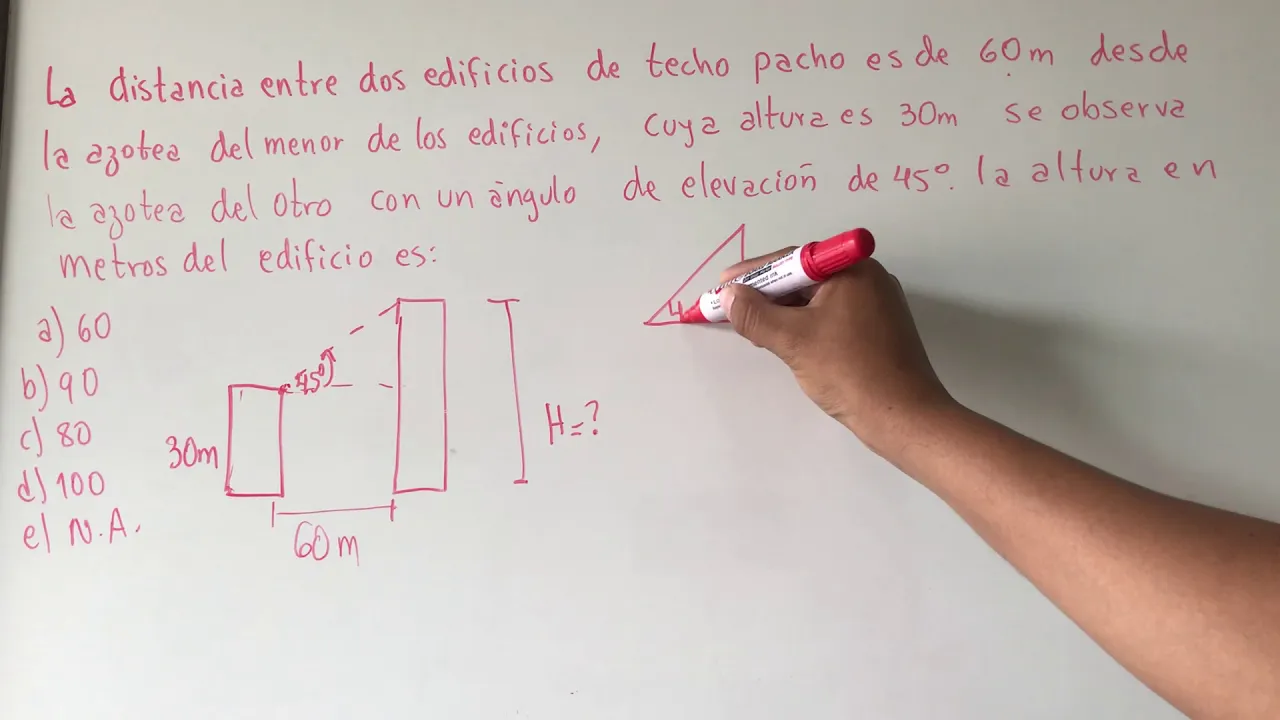 La distancia entre dos edificios de techo pacho es de 60m desde
la azotea del menor de los edificios, cuya altura es 30m se observa
la azotea del otro con un àngulo de elevacioñ de 45°. la altura en
metros del edificio es:
a) 60
b) 90
c) 80
d) 100
e) N.A.
45°
30m
H=?
60m
4